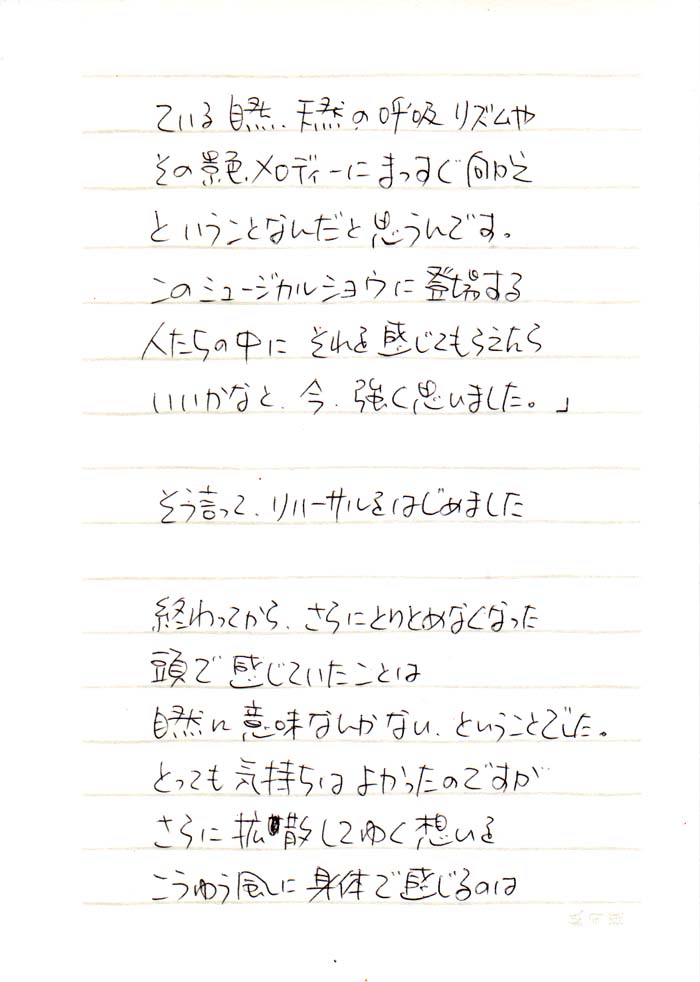 ている自然、天然の呼吸リズムや
その景色、メロディーにまっすぐ向かう
ということなんだと思うんです。
このミュージカルショウに登場する
人たちの中に それを感じてもらえたら
いいかなと、今、強く思いました。」
そう言って、リハーサルをはじめました
終わってから、さらにとりとめなくなった
頭で感じていたことは
自然に意味なんかない、ということでした。
とっても気持ちはよかったのですが
さらに拡散してゆく想いを
こうゆう風に身体で感じるのは